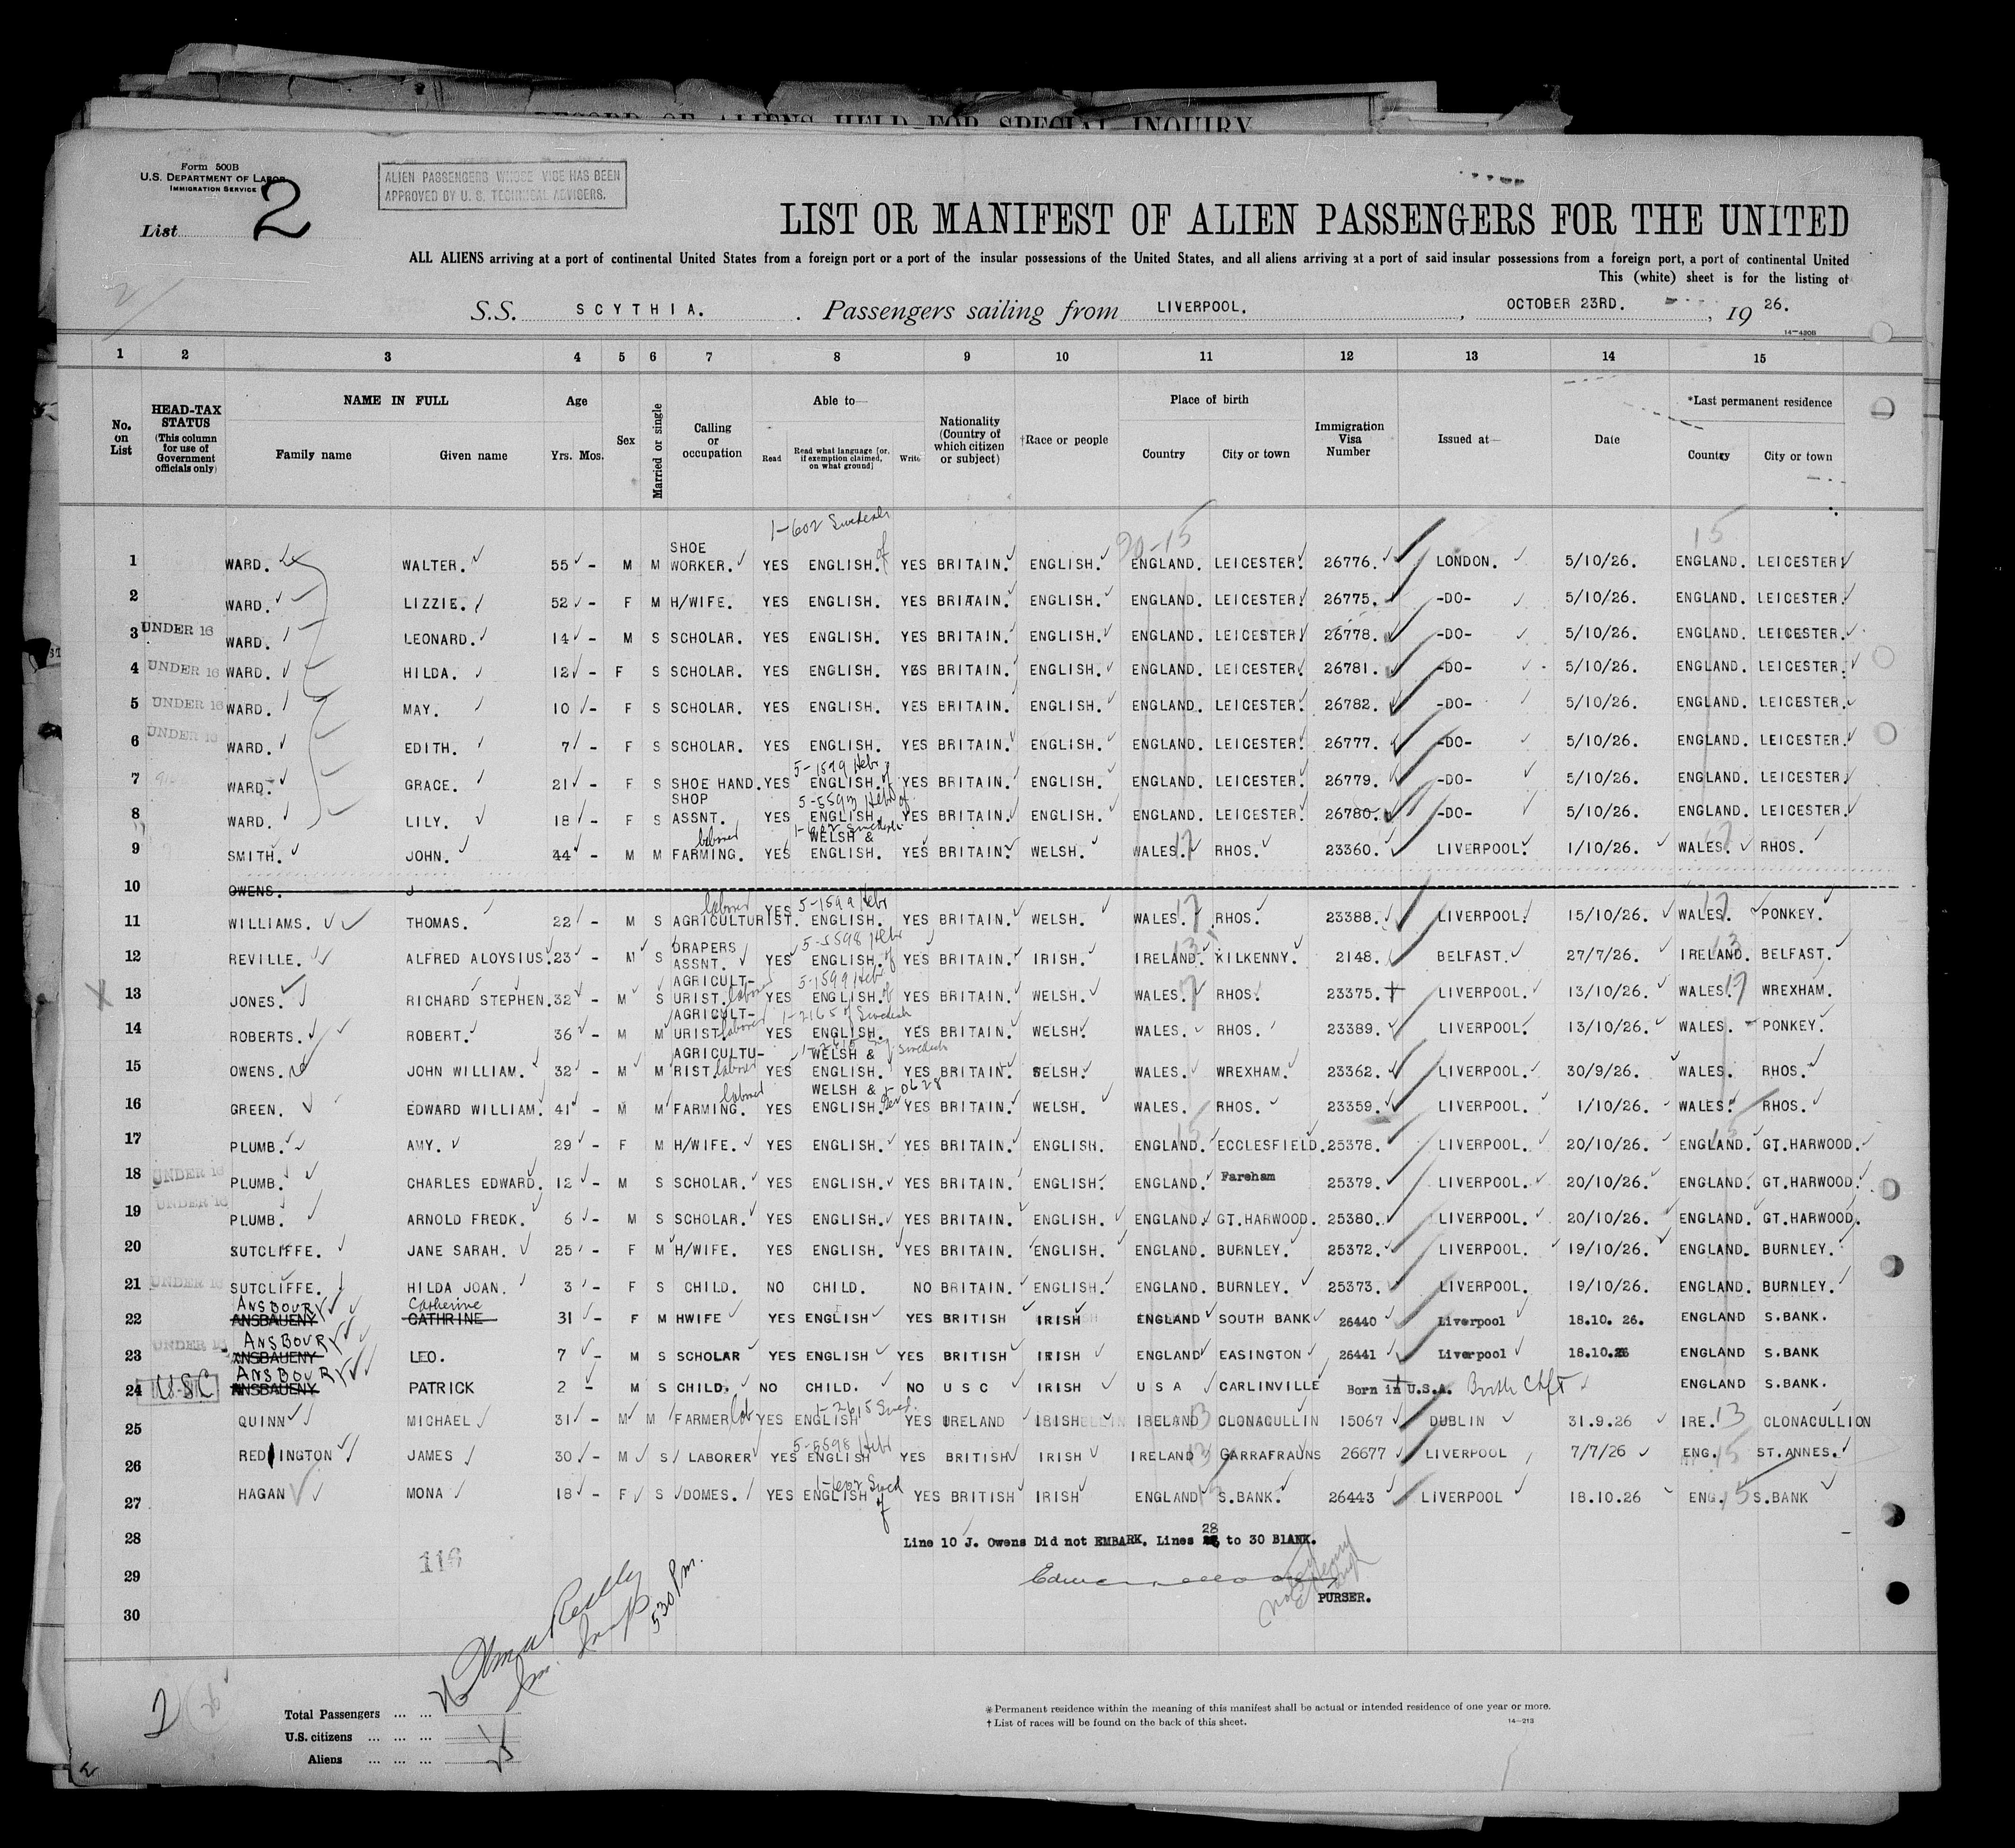 RECORD OF ALIENS HELD FOR SPECIAL INQUIRY
Form 500B
U.S. DEPARTMENT OF LABOR
IMMIGRATION SERVICE
List 2
ALIEN PASSENGERS WHOSE VISE HAS BEEN
APPROVED BY U. S. TECHNICAL ADVISERS.
LIST OR MANIFEST OF ALIEN PASSENGERS FOR THE UNITED
ALL ALIENS arriving at a port of continental United States from a foreign port or a port of the insular possessions of the United States, and all aliens arriving at a port of said insular possessions from a foreign port, a port of continental United
This (white) sheet is for the listing of
S.S. SCYTHIA. Passengers sailing from LIVERPOOL. , OCTOBER 23RD. , 19 26.
14—420B
1 2 3 4 5 6 7 8 9 10 11 12 13 14 15
No. on List
HEAD-TAX STATUS (This column for use of Government officials only)
NAME IN FULL
Family name Given name
Age
Yrs. Mos.
Sex
Married or single
Calling or occupation
Able to—
Read
Read what language [or, if exemption claimed, on what ground]
Write
Nationality (Country of which citizen or subject)
†Race or people
Place of birth
Country City or town
Immigration Visa Number
Issued at—
Date
*Last permanent residence
Country City or town
1-602 Swedish
20-15 15
1 WARD. WALTER. 55 - M M SHOE WORKER. YES ENGLISH. YES BRITAIN. ENGLISH. ENGLAND. LEICESTER. 26776. LONDON. 5/10/26. ENGLAND. LEICESTER.
2 WARD. LIZZIE. 52 - F M H/WIFE. YES ENGLISH. YES BRITAIN. ENGLISH. ENGLAND. LEICESTER. 26775. -DO- 5/10/26. ENGLAND. LEICESTER.
3 UNDER 16 WARD. LEONARD. 14 - M S SCHOLAR. YES ENGLISH. YES BRITAIN. ENGLISH. ENGLAND. LEICESTER. 26778. -DO- 5/10/26. ENGLAND. LEICESTER.
4 UNDER 16 WARD. HILDA. 12 - F S SCHOLAR. YES ENGLISH. YES BRITAIN. ENGLISH. ENGLAND. LEICESTER. 26781. -DO- 5/10/26. ENGLAND. LEICESTER.
5 UNDER 16 WARD. MAY. 10 - F S SCHOLAR. YES ENGLISH. YES BRITAIN. ENGLISH. ENGLAND. LEICESTER. 26782. -DO- 5/10/26. ENGLAND. LEICESTER.
6 UNDER 16 WARD. EDITH. 7 - F S SCHOLAR. YES ENGLISH. YES BRITAIN. ENGLISH. ENGLAND. LEICESTER. 26777. -DO- 5/10/26. ENGLAND. LEICESTER.
5-1599 Hebr
7 WARD. GRACE. 21 - F S SHOE HAND. YES ENGLISH. YES BRITAIN. ENGLISH. ENGLAND. LEICESTER. 26779. -DO- 5/10/26. ENGLAND. LEICESTER.
8 WARD. LILY. 18 - F S SHOP ASSNT. YES ENGLISH. YES BRITAIN. ENGLISH. ENGLAND. LEICESTER. 26780. -DO- 5/10/26. ENGLAND. LEICESTER.
1-602 Swedish
9 SMITH. JOHN. 44 - M M FARMING. laborer YES WELSH & ENGLISH. YES BRITAIN. WELSH. WALES. 17 RHOS. 23360. LIVERPOOL. 1/10/26. WALES. 17 RHOS.
10 OWENS. J
5-1599 Hebr
11 WILLIAMS. THOMAS. 22 - M S AGRICULTURIST. laborer YES ENGLISH. YES BRITAIN. WELSH. WALES. 17 RHOS. 23388. LIVERPOOL. 15/10/26. WALES. 17 PONKEY.
5-5598 Hebr
12 REVILLE. ALFRED ALOYSIUS. 23 - M S DRAPERS ASSNT. YES ENGLISH. YES BRITAIN. IRISH. IRELAND. 13 KILKENNY. 2148. BELFAST. 27/7/26. IRELAND. 13 BELFAST.
5-1599 Hebr
13 JONES. RICHARD STEPHEN. 32 - M S AGRICULT-URIST. laborer YES ENGLISH. YES BRITAIN. WELSH. WALES. 17 RHOS. 23375. LIVERPOOL. 13/10/26. WALES. 17 WREXHAM.
1-2165 of Swedish
14 ROBERTS. ROBERT. 36 - M M AGRICULT-URIST. laborer YES ENGLISH. YES BRITAIN. WELSH. WALES. RHOS. 23389. LIVERPOOL. 13/10/26. WALES. PONKEY.
15 OWENS. JOHN WILLIAM. 32 - M M AGRICULTU-RIST. laborer YES WELSH & ENGLISH. YES BRITAIN. WELSH. WALES. WREXHAM. 23362. LIVERPOOL. 30/9/26. WALES. RHOS.
16 GREEN. EDWARD WILLIAM. 41 - M M FARMING. laborer YES WELSH & ENGLISH. YES BRITAIN. WELSH. WALES. RHOS. 23359. LIVERPOOL. 1/10/26. WALES. RHOS.
17 PLUMB. AMY. 29 - F M H/WIFE. YES ENGLISH. YES BRITAIN. ENGLISH. ENGLAND. 15 ECCLESFIELD. 25378. LIVERPOOL. 20/10/26. ENGLAND. 15 GT.HARWOOD.
18 UNDER 16 PLUMB. CHARLES EDWARD. 12 - M S SCHOLAR. YES ENGLISH. YES BRITAIN. ENGLISH. ENGLAND. Fareham 25379. LIVERPOOL. 20/10/26. ENGLAND. GT.HARWOOD.
19 UNDER 16 PLUMB. ARNOLD FREDK. 6 - M S SCHOLAR. YES ENGLISH. YES BRITAIN. ENGLISH. ENGLAND. GT.HARWOOD. 25380. LIVERPOOL. 20/10/26. ENGLAND. GT.HARWOOD.
20 SUTCLIFFE. JANE SARAH. 25 - F M H/WIFE. YES ENGLISH. YES BRITAIN. ENGLISH. ENGLAND. BURNLEY. 25372. LIVERPOOL. 19/10/26. ENGLAND. BURNLEY.
21 UNDER 16 SUTCLIFFE. HILDA JOAN. 3 - F S CHILD. NO CHILD. NO BRITAIN. ENGLISH. ENGLAND. BURNLEY. 25373. LIVERPOOL. 19/10/26. ENGLAND. BURNLEY.
ANSBOUR Catherine
22 ANSBAUENY CATHRINE 31 - F M HWIFE YES ENGLISH YES BRITISH IRISH ENGLAND SOUTH BANK 26440 Liverpool 18.10. 26. ENGLAND S.BANK.
ANSBOUR
23 UNDER 16 ANSBAUENY LEO. 7 - M S SCHOLAR YES ENGLISH YES BRITISH IRISH ENGLAND EASINGTON 26441 Liverpool 18.10.26 ENGLAND S.BANK
ANSBOUR
24 USC ANSBAUENY PATRICK 2 - M S CHILD. NO CHILD. NO U S C IRISH U S A CARLINVILLE Born in U.S.A. Birth Ctft ENGLAND S.BANK.
1-2615 Swed.
25 QUINN MICHAEL 31 - M M FARMER lab YES ENGLISH YES IRELAND IRISH IRELAND 13 CLONAGULLIN 15067 DUBLIN 31.9.26 IRE. 13 CLONACULLION
5-5598 Hebr
26 REDINGTON JAMES 30 - M S LABORER YES ENGLISH YES BRITISH IRISH IRELAND 13 GARRAFRAUNS 26677 LIVERPOOL 7/7/26 ENG. 15 ST.ANNES.
1-602 Swed of
27 HAGAN MONA 18 - F S DOMES. YES ENGLISH YES BRITISH IRISH ENGLAND 15 S.BANK. 26443 LIVERPOOL 18.10.26 ENG. 15 S.BANK
28 Line 10 J. Owens Did not EMBARK. Lines 28 to 30 BLANK.
29
30 PURSER.
116
530 Pm.
2
Total Passengers ... ...
U.S. citizens ... ... ...
Aliens ... ... ...
* Permanent residence within the meaning of this manifest shall be actual or intended residence of one year or more.
† List of races will be found on the back of this sheet.
14—213
2